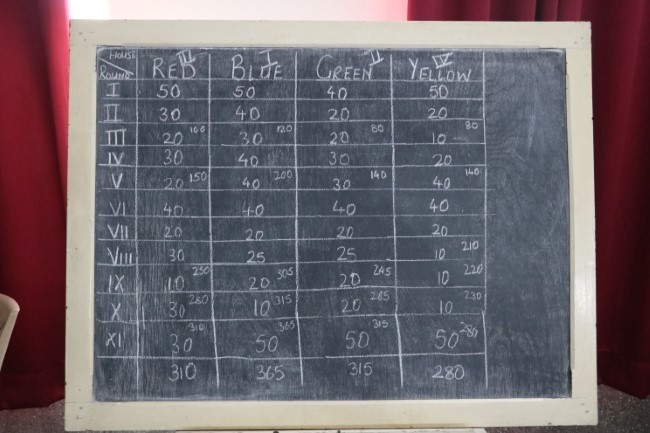 HOUSE III I II IV
ROUND RED BLUE GREEN YELLOW
I 50 50 40 50
II 30 40 20 20
III 20 100 30 120 20 80 10 80
IV 30 40 30 20
V 20 150 40 200 30 140 40 140
VI 40 40 40 40
VII 20 20 20 20
VIII 30 25 25 10 210
IX 10 250 20 305 20 245 10 220
X 30 280 10 315 20 265 10 230
XI 30 310 50 365 50 315 50 280
310 365 315 280